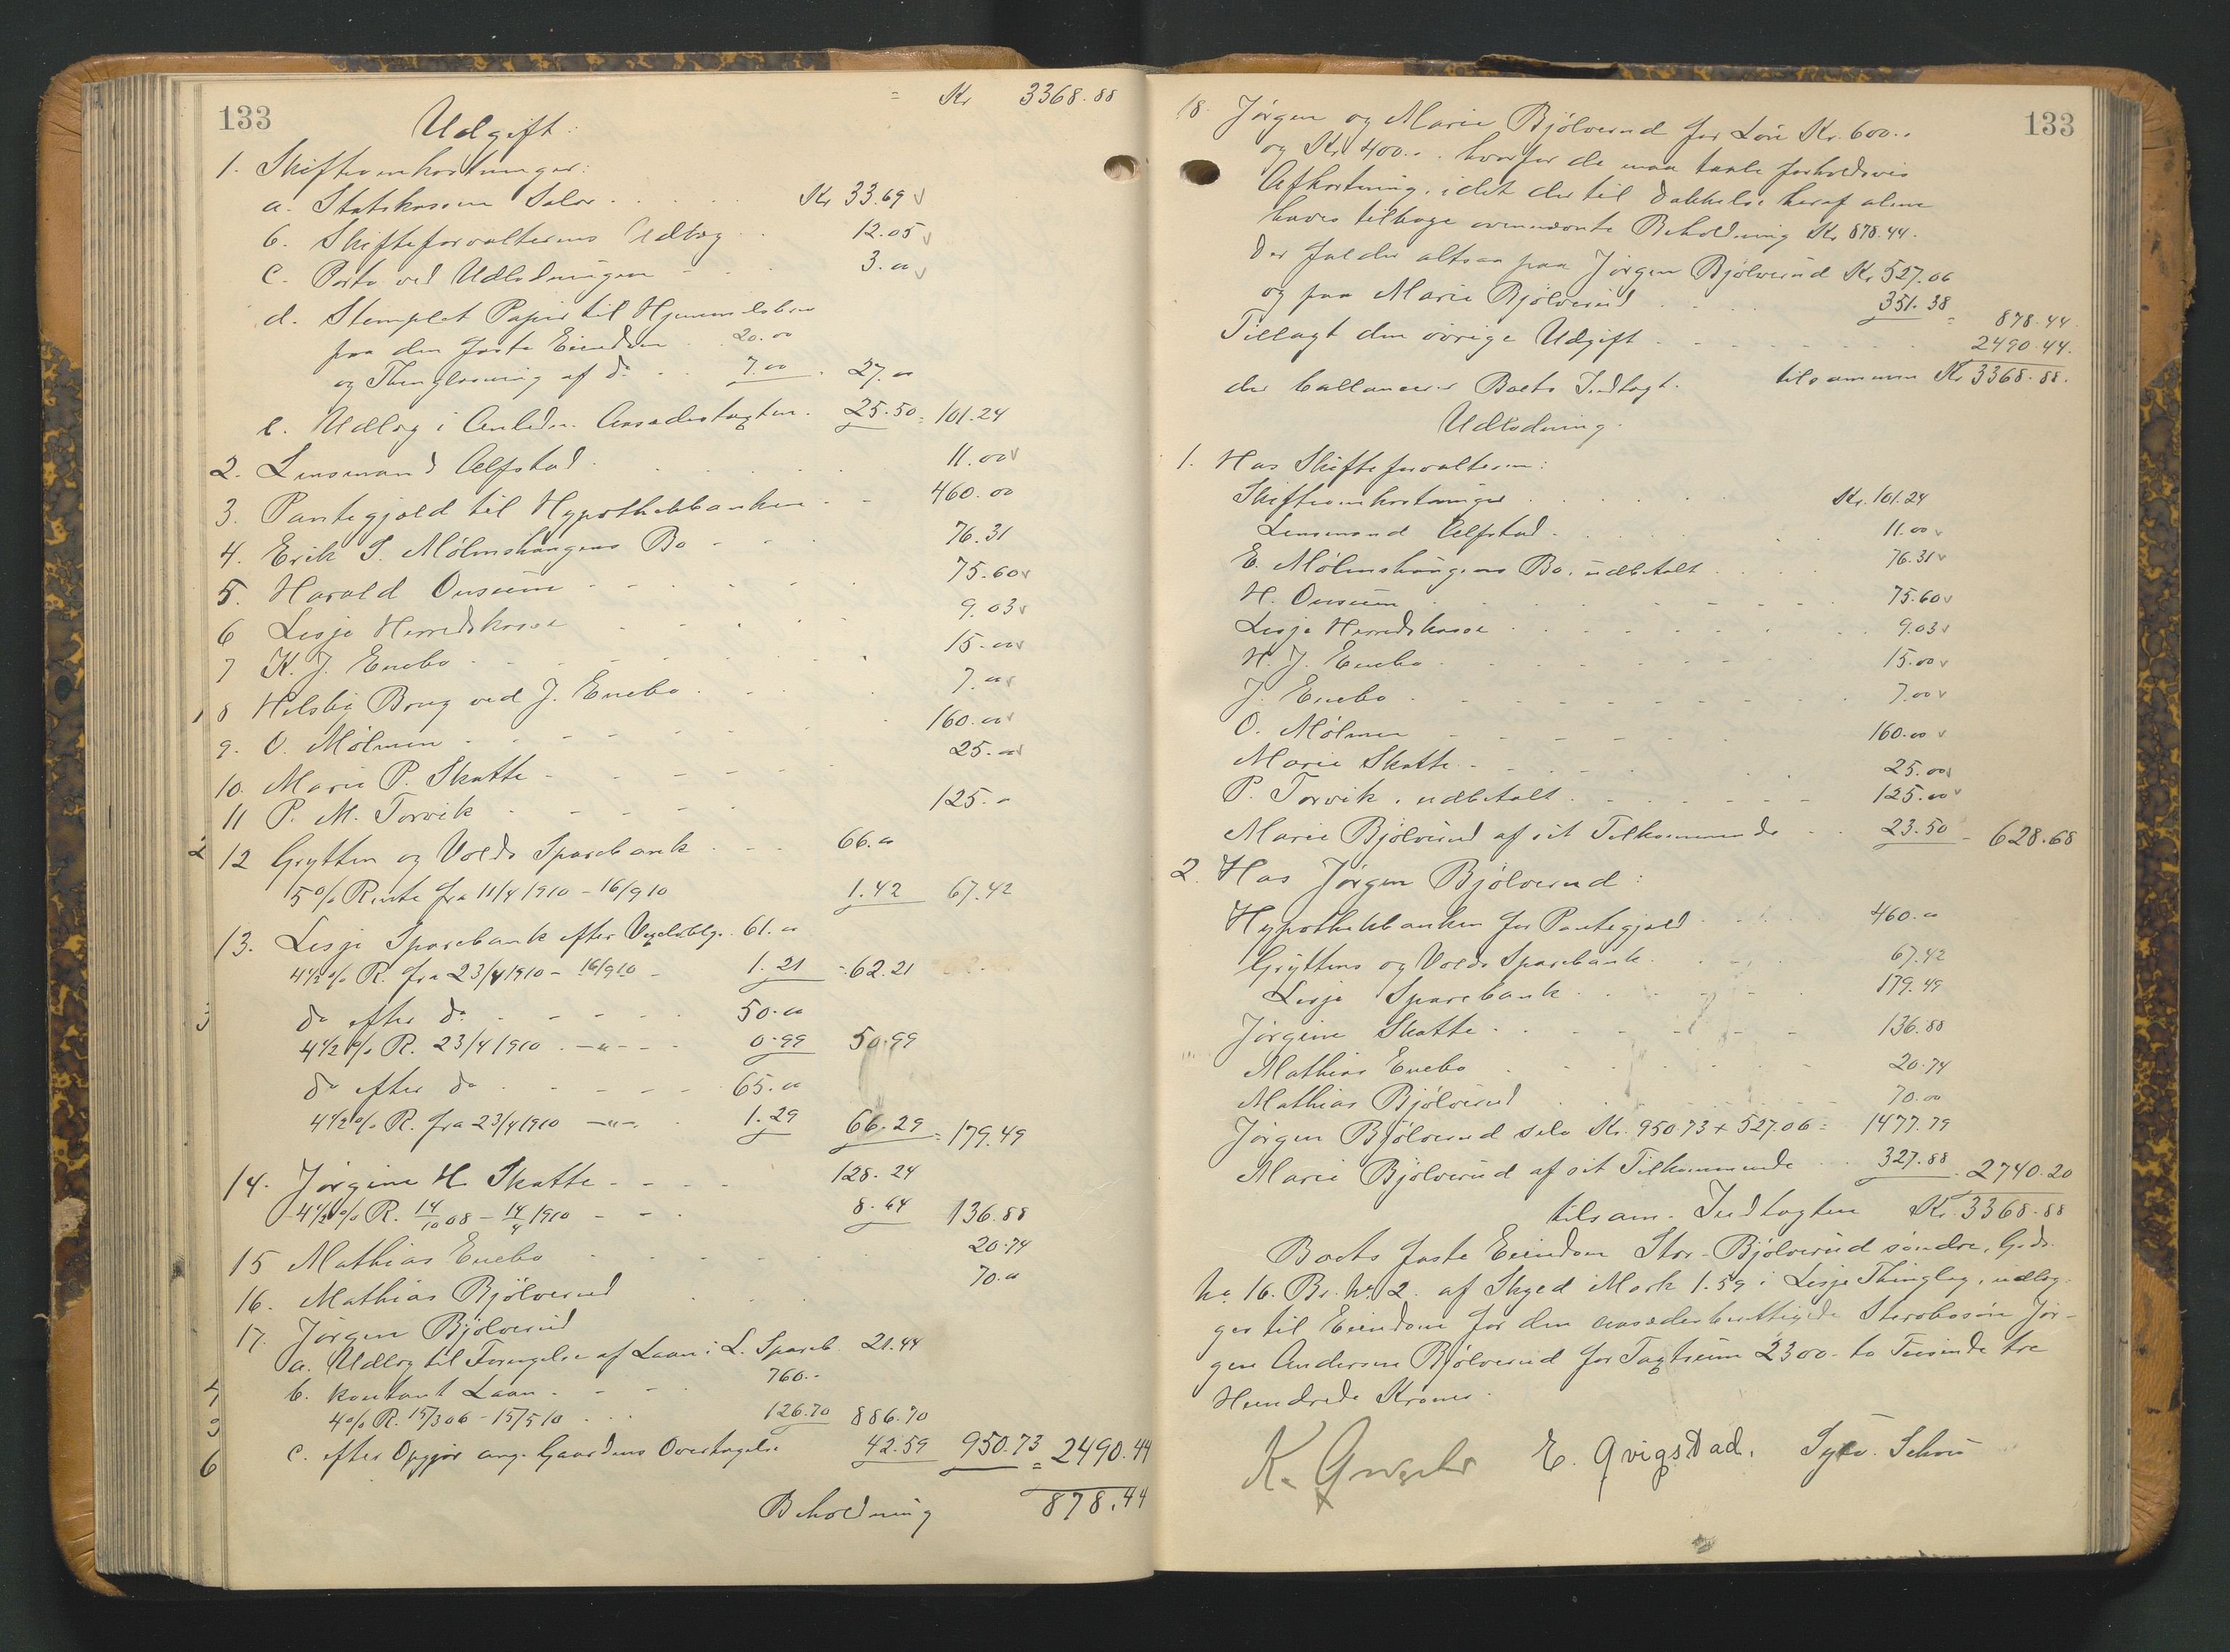 133
= Kr 3368.88
Udgift:
1. Skifteomkostninger:
a. Statskassens Salær . . . Kr 33.69
b. Skifteforvalterens Udlæg . . 12.05
c. Porto ved Udlodningen - . . 3.00
d. Stemplet Papir til Hjemmelsbrev
paa den faste Eiendom . . 20.00
og Thinglæsning af do . . 7.00 . 27.00
e. Udlæg i Anledn. Aasædestagten . 25.50 = 101.24
2. Lensmand Ulfstad . . . 11.00
3. Pantegjæld til Hypothekbanken . - 460.00
4. Erik S. Mølmshaugens Bo - - . 76.31
5. Harald Ousum - - - - - 75.60
6 Lesje Herredskasse . . . 9.03
7 K. J. Enebo - - - - 15.00
1 8 Hilsbø Brug ved J. Enebo . . . 7.00
9. O. Mølmen - - - - - 160.00
10. Marie P. Skotte - - - - 25.00
11 P. M. Torvik - - - - 125.-
2 12 Grytten og Volds Sparebank . . . 66.00
5 % Rente fra 11/4 1910 - 16/9 10 1.42 67.42
13. Lesje Sparebank efter Vexeloblg. 61.00
4 1/2 % R. fra 23/4 1910 - 16/9 10 - 1.21 = 62.21
3 do efter do - - - - 50.00
4 1/2 % R. 23/4 1910 . -"- - - 0.99 50.99
do efter do - - - - 65.00
4 1/2 % R. fra 23/4 1910 -"- . 1.29 66.29 = 179.49
14. Jørgine H. Skotte - - - - 128.24
4 1/2 % R. 14/10 08 - 14/4 1910 - - . 8.64 136.88
15 Mathias Enebo . . . 20.74
16. Mathias Bjølverud . . . 70.00
17. Jørgen Bjølverud
a. Udlæg til Fornyelse af Laan i L. Spareb. 21.44
4 b. kontant Laan . - - 760.-
5 4 % R. 15/3 06 - 15/5 10 . . . 126.70 886.70
6 c. efter Opgjør ang. Gaardens Overtagelse 42.59 950.73 = 2490.44
Beholdning 878.44
133
18. Jørgen og Marie Bjølverud for Løn Kr. 600..
og Kr 400.. hvorfor de maa taale forholdsvis
Afkortning, idet der til Dækkelse heraf alene
haves tilbage ovennævnte Beholdning Kr 878.44.
Der falder altsaa paa Jørgen Bjølverud Kr 527.06
og paa Marie Bjølverud . . . 351.38 = 878.44
Tillagt den øvrige Udgift - - - - 2490.44.
der ballancerer Boets Indtægt. tilsammen Kr 3368.88.
Udlodning.
1. Hos Skifteforvalteren:
Skifteomkostninger . . . Kr. 101.24
Lensmand Ulfstad . . . 11.00
E. Mølmshaugens Bo, udbetalt . . . 76.31
H. Ousum . . . 75.60
Lesje Herredskasse . . . 9.03
K. J. Enebo . . . 15.00
J. Enebo . . . 7.00
O. Mølmen - - - 160.00
Marie Skotte . - - . 25.00
P. Torvik, udbetalt . - - - 125.00
Marie Bjølverud af sit Tilkommende . . 23.50 - 628.68
2. Hos Jørgen Bjølverud:
Hypothekbanken for Pantegjæld . . . 460.00
Gryttens og Volds Sparebank . . . 67.42
Lesje Sparebank . . . 179.49
Jørgine Skotte . . . 136.88
Mathias Enebo . . . 20.74
Mathias Bjølverud . . . 70.00
Jørgen Bjølverud selv Kr. 950 73 + 527.06 = 1477.79
Marie Bjølverud af sit Tilkommende . . 327.88 . 2740.20
tilsam. Indtægten Kr. 3368.88
Boets faste Eiendom Stor-Bjølverud søndre, Gds.
No. 16. Br. No. 2. af Skyld Mark 1.59 i Lesje Thinglag, udlæg-
ges til Eiendom for den aasædesberettigede Stervbosøn Jør-
gen Andersen Bjølverud for Taxtsum 2300.- to Tusinde tre
Hundrede Kroner.
E. Qvigstad.